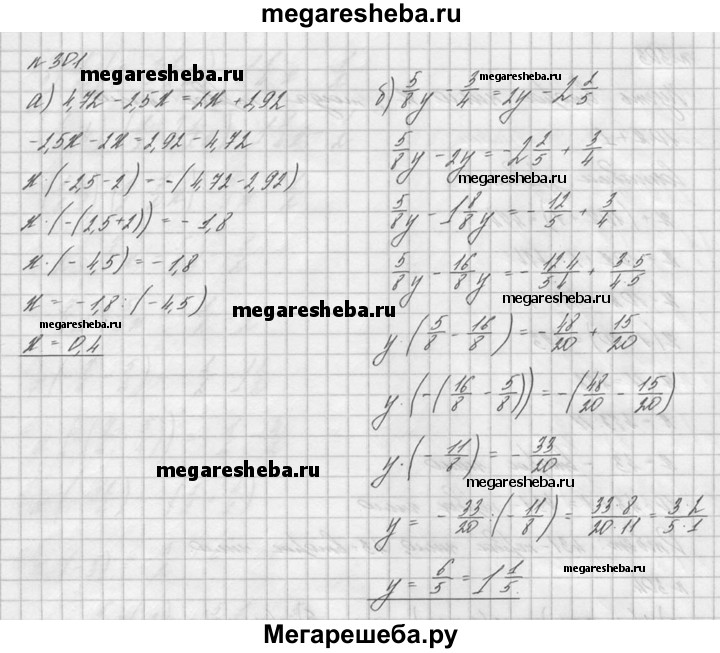 megaresheba.ru
№ 301
megaresheba.ru
а) 4,72 - 2,5x = 2x + 2,92
-2,5x - 2x = 2,92 - 4,72
x · (-2,5 - 2) = -(4,72 - 2,92)
x · (-(2,5+2)) = -1,8
x · (-4,5) = -1,8
x = -1,8 : (-4,5)
megaresheba.ru
x = 0,4
megaresheba.ru
megaresheba.ru
б) 5/8 y - 3/4 = 2y - 2 2/5
megaresheba.ru
5/8 y - 2y = -2 2/5 + 3/4
megaresheba.ru
5/8 y - 1 8/8 y = -12/5 + 3/4
5/8 y - 16/8 y = -12·4/5·4 + 3·5/4·5
megaresheba.ru
y · (5/8 - 16/8) = -48/20 + 15/20
y · (-(16/8 - 5/8)) = -(48/20 - 15/20)
y · (-11/8) = -33/20
megaresheba.ru
y = -33/20 : (-11/8) = 33·8/20·11 = 3·2/5·1
y = 6/5 = 1 1/5.
megaresheba.ru
Мегарешеба.ру